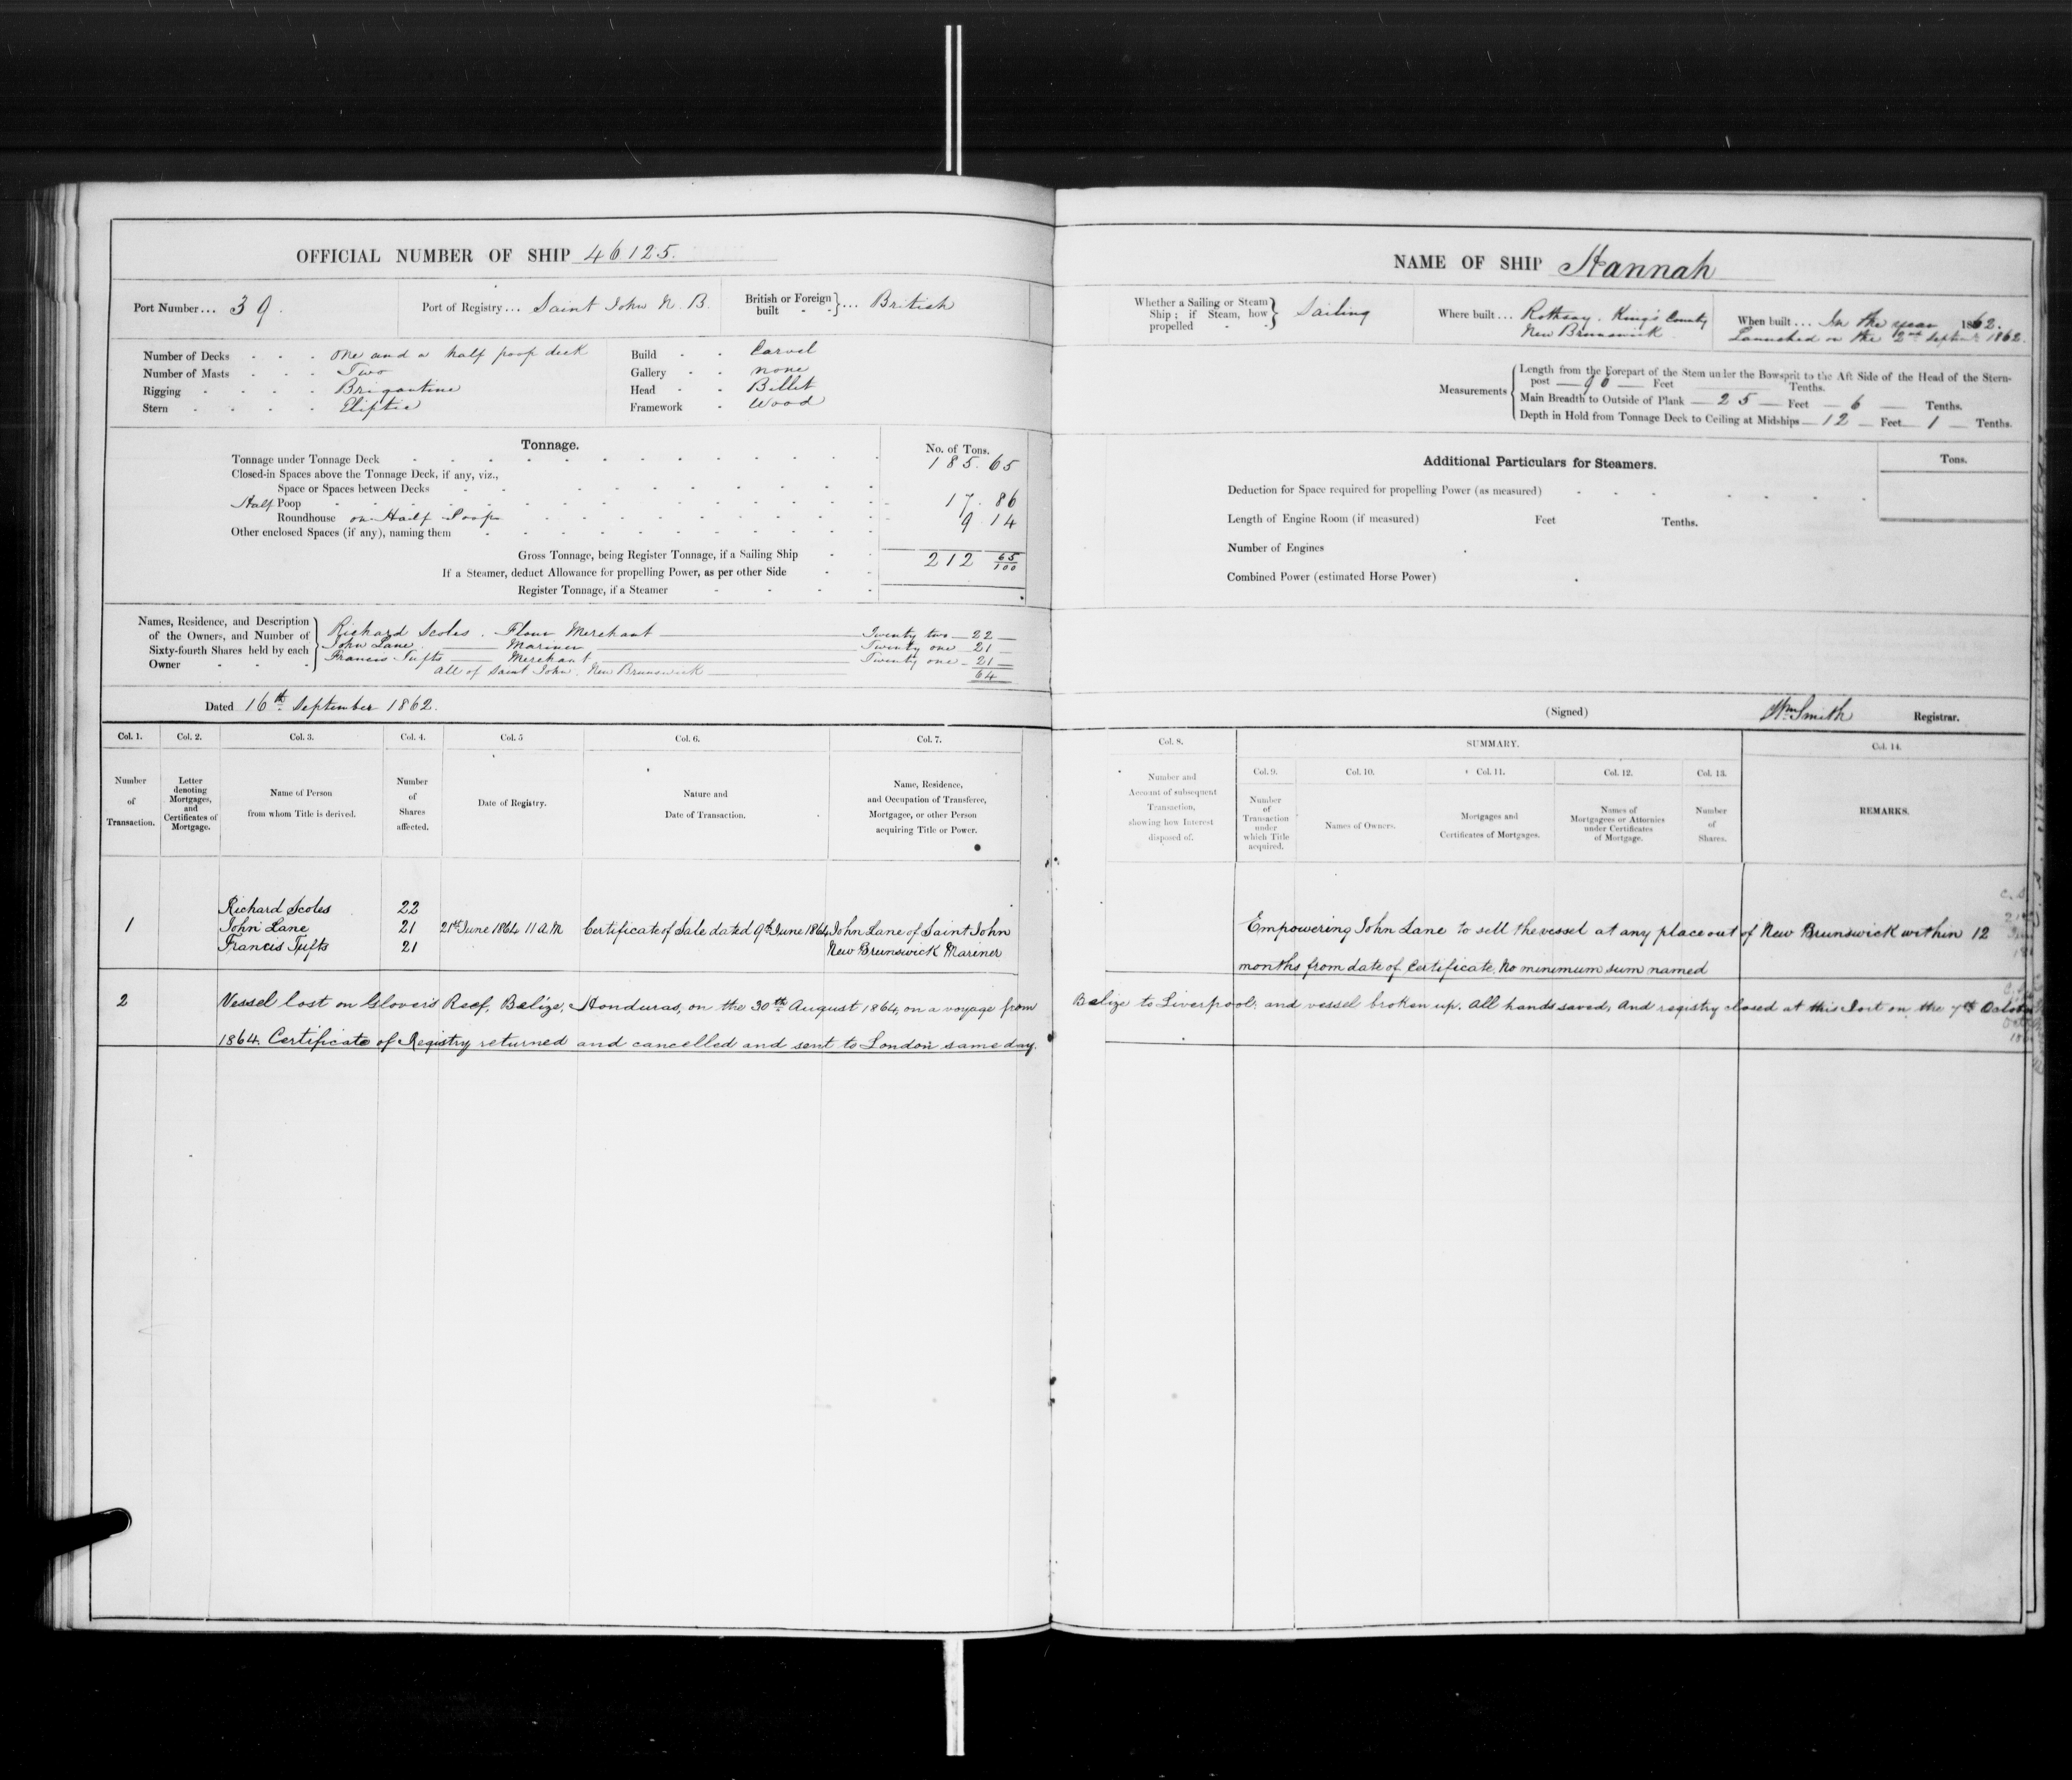 OFFICIAL NUMBER OF SHIP 46125.
Port Number... 39.
Port of Registry... Saint John N. B.
British or Foreign built } ... British
Number of Decks - - - One and a half poop deck
Number of Masts - - - Two
Rigging - - - - Brigantine
Stern - - - - Eliptic
Build - - Carvel
Gallery - - none
Head - - Billet
Framework - Wood
Tonnage.
No. of Tons.
Tonnage under Tonnage Deck 185.65
Closed-in Spaces above the Tonnage Deck, if any, viz.,
Space or Spaces between Decks
Half Poop 17.86
Roundhouse on Half Poop 9.14
Other enclosed Spaces (if any), naming them
Gross Tonnage, being Register Tonnage, if a Sailing Ship 212 65/100
If a Steamer, deduct Allowance for propelling Power, as per other Side
Register Tonnage, if a Steamer
Names, Residence, and Description
of the Owners, and Number of
Sixty-fourth Shares held by each
Owner
Richard Scoles. Flour Merchant — Twenty two — 22 —
John Lane. — Mariner — Twenty one — 21 —
Francis Tufts — Merchant — Twenty one — 21 —
All of Saint John. New Brunswick — 64
Dated 16th September 1862.
Col. 1.
Number
of
Transaction.
Col. 2.
Letter
denoting
Mortgages,
and
Certificates of
Mortgage.
Col. 3.
Name of Person
from whom Title is derived.
Col. 4.
Number
of
Shares
affected.
Col. 5
Date of Registry.
Col. 6.
Nature and
Date of Transaction.
Col. 7.
Name, Residence,
and Occupation of Transferee,
Mortgagee, or other Person
acquiring Title or Power.
Richard Scoles 22
1 John Lane 21 21st June 1864 11 A.M Certificate of Sale dated 9th June 1864 John Lane of Saint John
Francis Tufts 21 New Brunswick Mariner
2 Vessel lost on Glover's Reef, Belize, Honduras, on the 30th August 1864, on a voyage from
1864. Certificate of Registry returned and cancelled and sent to London same day.
NAME OF SHIP Hannah
Whether a Sailing or Steam
Ship; if Steam, how
propelled
Sailing
Where built... Rothsay. King's County
New Brunswick
When built... In the year 1862.
Launched on the 2nd Septem 1862.
Measurements
Length from the Forepart of the Stem under the Bowsprit to the Aft Side of the Head of the Stern-
post — 96 — Feet Tenths.
Main Breadth to Outside of Plank — 25 — Feet — 6 — Tenths.
Depth in Hold from Tonnage Deck to Ceiling at Midships — 12 — Feet — 1 — Tenths.
Additional Particulars for Steamers.
Tons.
Deduction for Space required for propelling Power (as measured)
Length of Engine Room (if measured) Feet Tenths.
Number of Engines
Combined Power (estimated Horse Power)
(Signed) Wm Smith Registrar.
Col. 8.
Number and
Account of subsequent
Transaction,
showing how Interest
disposed of.
SUMMARY.
Col. 9.
Number
of
Transaction
under
which Title
acquired.
Col. 10.
Names of Owners.
Col. 11.
Mortgages and
Certificates of Mortgages.
Col. 12.
Names of
Mortgagees or Attornies
under Certificates
of Mortgage.
Col. 13.
Number
of
Shares.
Col. 14.
REMARKS.
Empowering John Lane to sell the vessel at any place out of New Brunswick within 12
months from date of Certificate. No minimum sum named
Belize to Liverpool; and vessel broken up. All hands saved, And registry closed at this Port on the 7th October